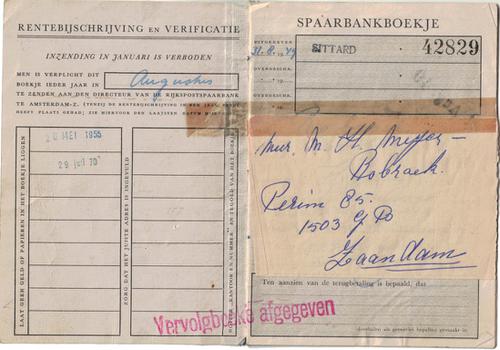 RENTEBIJSCHRIJVING EN VERIFICATIE
INZENDING IN JANUARI IS VERBODEN
MEN IS VERPLICHT DIT
BOEKJE IEDER JAAR IN
Augustus
TE ZENDEN AAN DEN DIRECTEUR VAN DE RIJKSPOSTSPAARBANK
TE AMSTERDAM-Z. (TENZIJ DE RENTEBIJSCHRIJVING IN DEN
HEEFT PLAATS GEHAD; ZIE HIERVOOR DEN LAATSTEN DATUM
LAAT GEEN GELD OF PAPIEREN IN HET BOEKJE LIGGEN
20 MEI 1955
29 JULI 70
ZORG DAT HET JUISTE ADRES IS INGEVULD
KANTOOR EN NUMMER" AAN TEGOED VAN HET BOEK
Vervolgboekje afgegeven
SPAARBANKBOEKJE
UITGEGEVEN
31.8.1949
SITTARD
42829
OVERGESCHR.
OVERGESCHR.
mevr. M. H. Meijer -
Bobraek.
Perim 85.
1503 GP
Zaandam
Ten aanzien van de terugbetaling is bepaald, dat